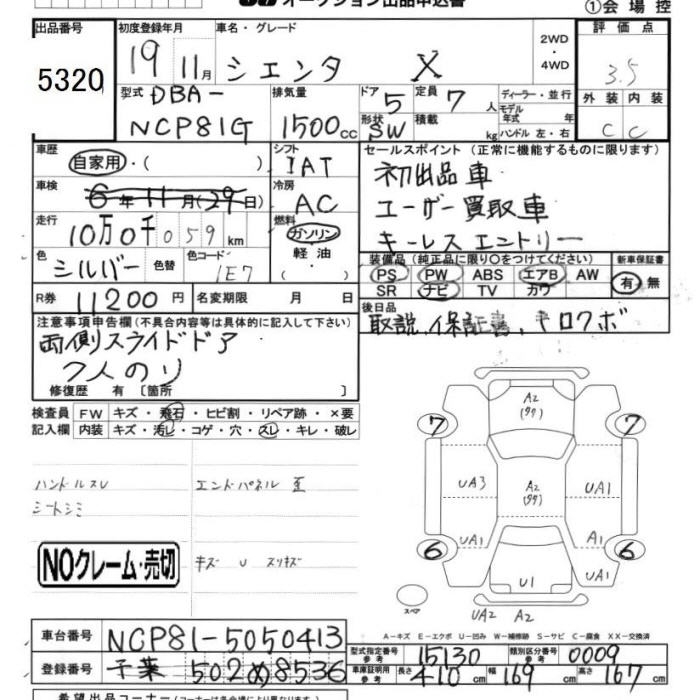 オークション出品申込書
①会場控
出品番号 初度登録年月 車名・グレード 2WD・4WD 評価点
5320 19 11月 シエンタ X 3.5
型式 DBA- NCP81G 排気量 1500cc ドア 5 形状 SW 定員 7人 積載 kg ディーラー・並行 モデル年式 年 ハンドル 左・右 外装 内装
C C
車歴 自家用・( ) シフト IAT セールスポイント (正常に機能するものに限ります)
初出品車
車検 6年11月(29日) 冷房 AC ユーザー買取車
走行 10万0千059km 燃料 ガソリン 軽油・( ) キーレスエントリー
色 シルバー 色替 色コード 1E7
装備品(純正品に限り○をつけてください) 新車保証書
PS PW ABS エアB AW 有・無
SR ナビ TV カワ
R券 11200円 名変期限 月 日 後日品
取説、保証書、キロクボ
注意事項申告欄(不具合内容等は具体的に記入して下さい)
両側スライドドア
7人のり
修復歴 有 〔箇所 〕
検査員 FW キズ・飛石・ヒビ割・リペア跡・×要
記入欄 内装 キズ・汚レ・コゲ・穴・スレ・キレ・破レ
ハンドルスレ エンドパネル歪
シートシミ
NOクレーム・売切
キズ U スリキズ
A2
7 7
UA3 A2 UA1
UA1 A1
6 6
U1 A1
スペア UA2 A2
A－キズ E－エクボ U－凹み W－補修跡 S－サビ C－腐食 XX－交換済
車台番号 NCP81-5050413 型式指定番号 参考 15130 類別区分番号 参考 0009
登録番号 千葉 502め8536 車庫証明用 参考 長さ 410cm 幅 169cm 高さ 167cm
希望出品コーナー